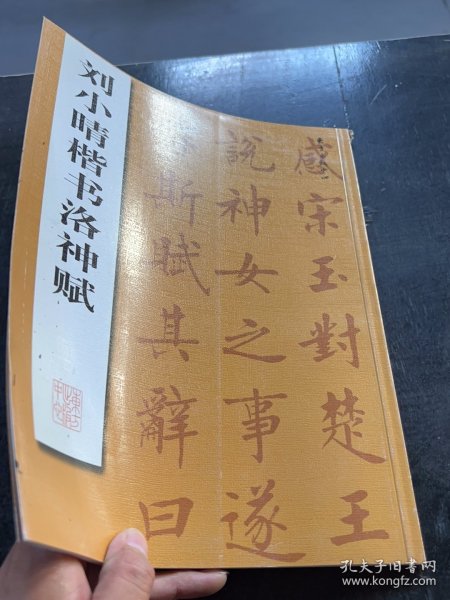 刘小晴楷书洛神赋
感宋玉對楚王
說神女之事遂
斯賦其辭曰
孔夫子旧书网
www.kongfz.com